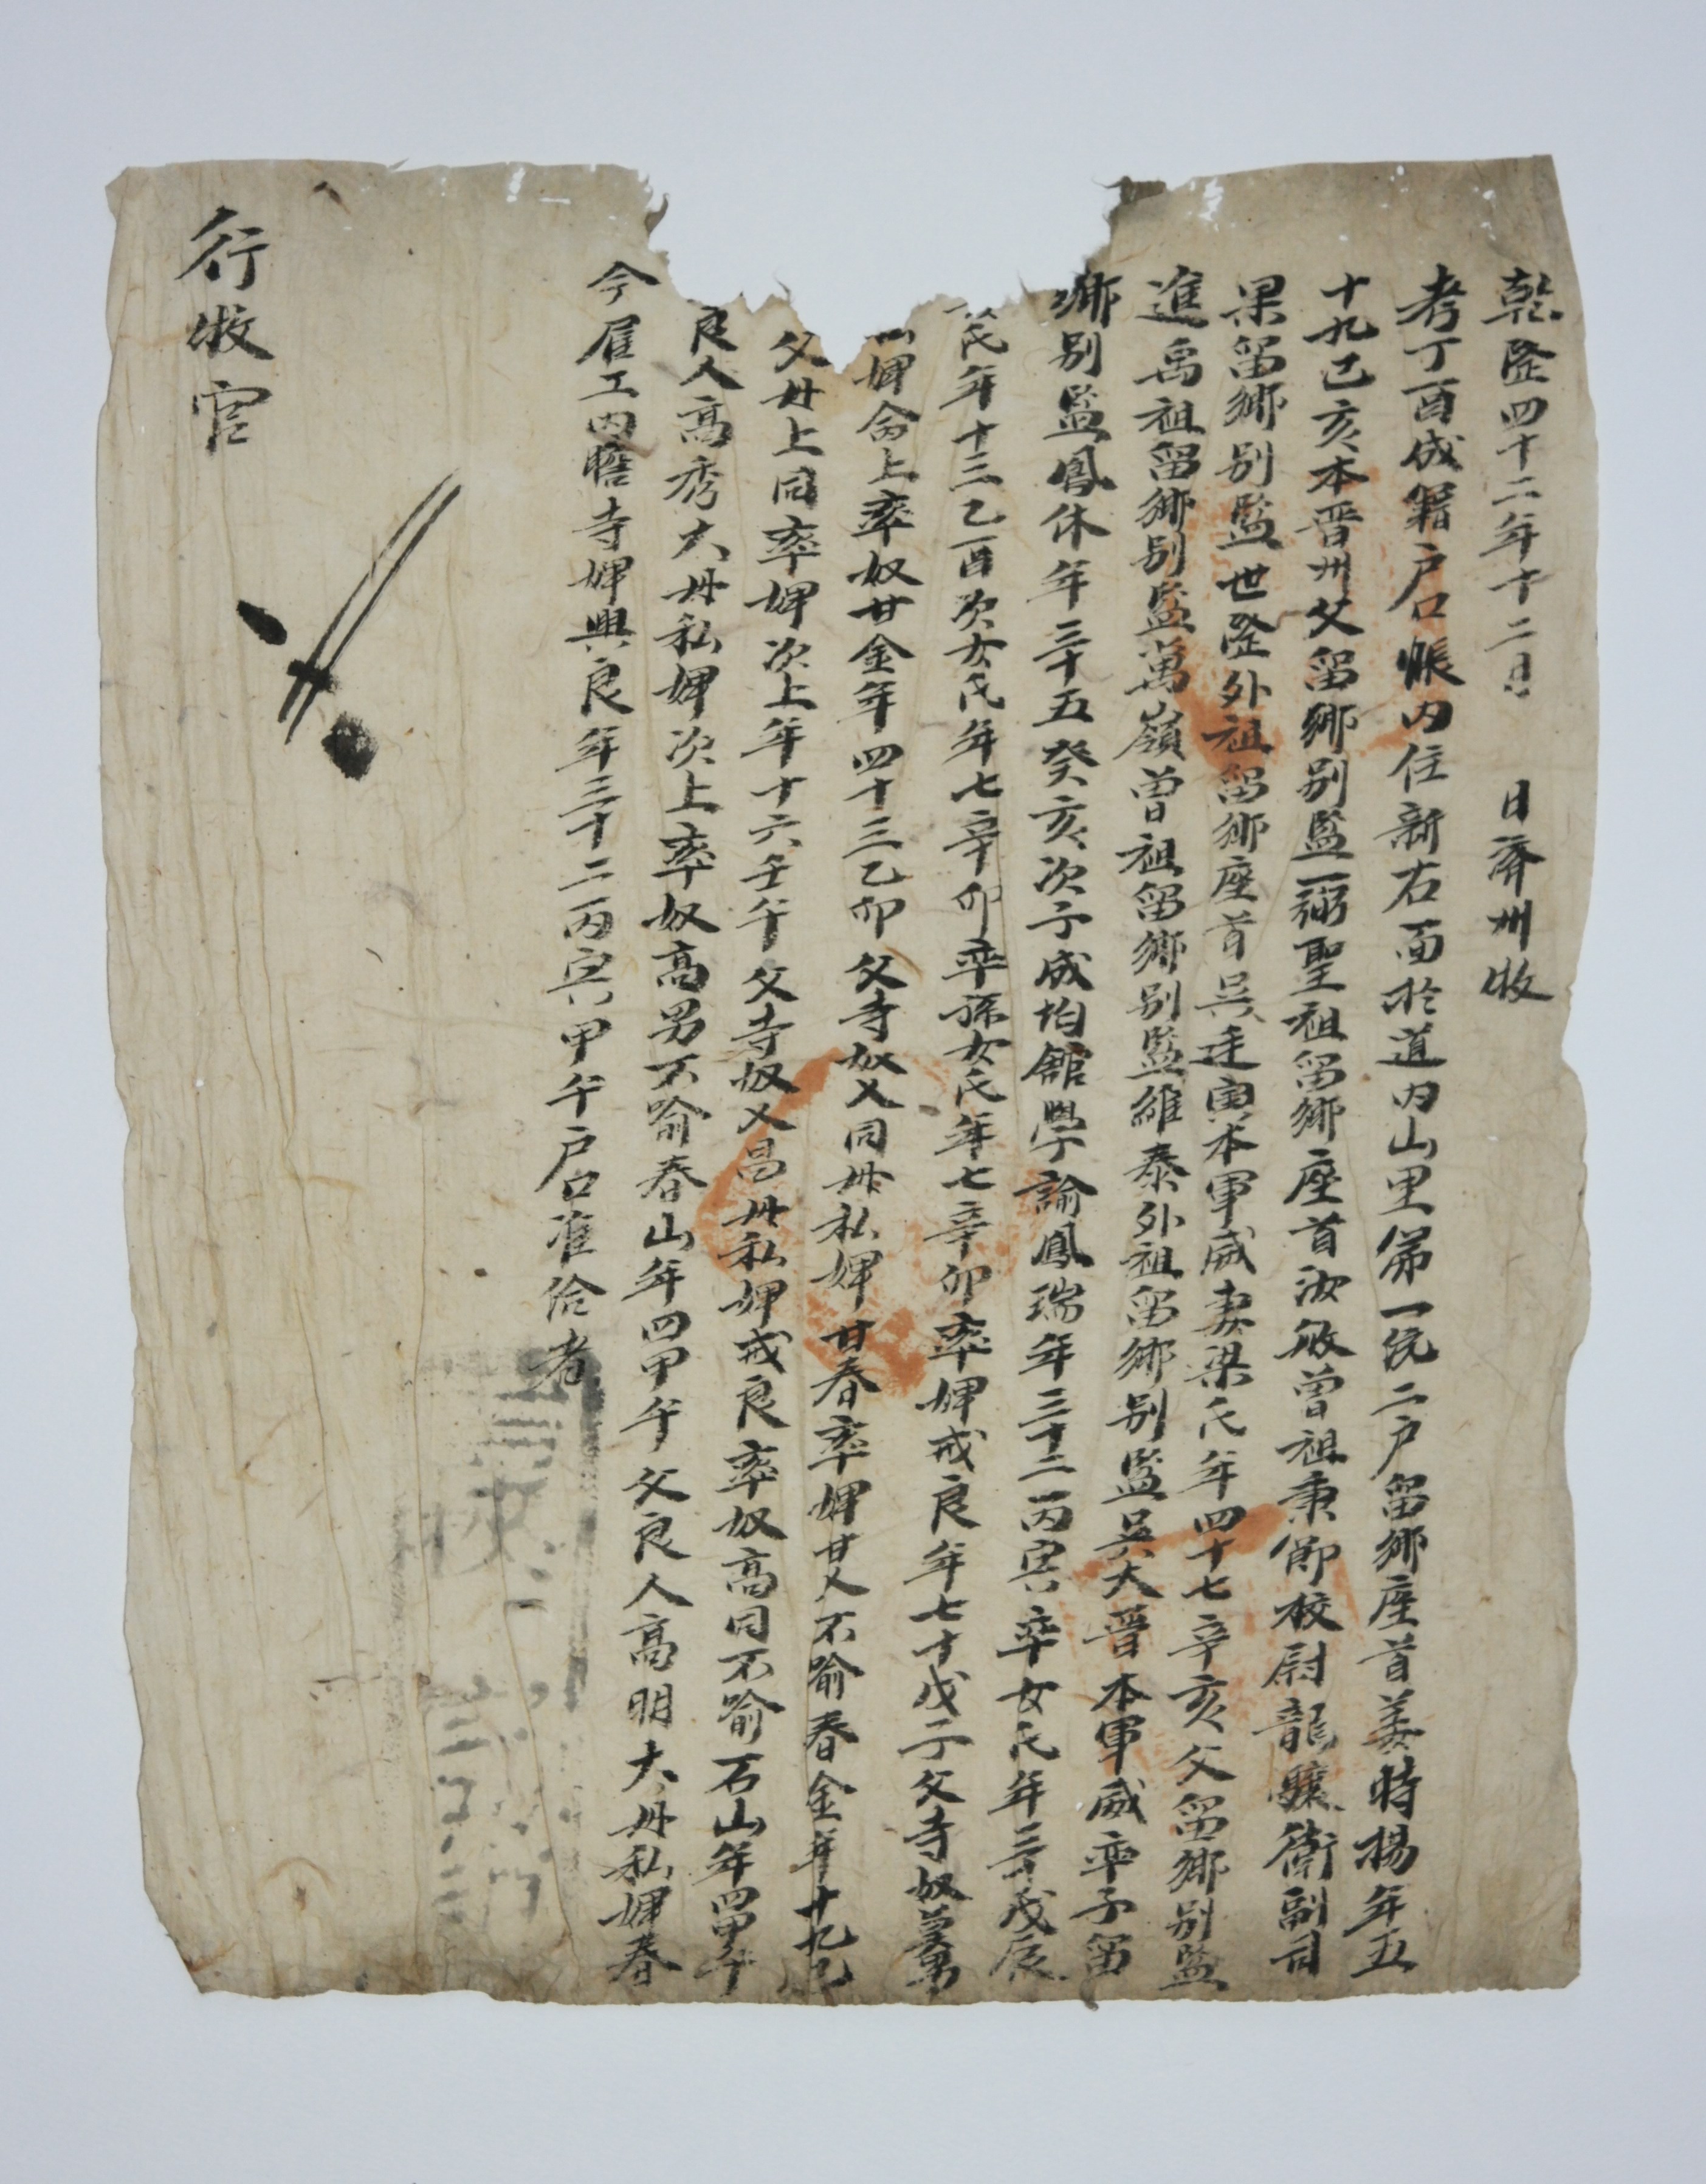 乾隆四十二年十二月　日濟州牧
考丁酉成籍戶口帳內住新右面於道內山里第一統二戶留鄉座首姜時揚年五
十九己亥本晋州父留鄉別監弼聖祖留鄉座首汝敏曾祖秉節校尉龍驤衛副司
果留鄉別監世隆外祖留鄉座首吳廷寅本軍威妻梁氏年四十七辛亥父留鄉別監
進禹祖留鄉別監萬嶺曾祖留鄉別監維泰外祖留鄉別監吳大晋本軍威率子留
鄉別監鳳休年三十五癸亥次子成均館學諭鳳瑞年三十二丙寅率女氏年三十戊辰
氏年十三乙酉次女氏年七辛卯率孫女氏年七辛卯率婢戒良年七十戊子父寺奴
婢命上率奴廿金年四十三乙卯父寺奴乂同母私婢廿春率婢廿乂不喻春金年十九己
父母上同率婢次上年十六壬午父寺奴乂昌母私婢戒良率奴高同不喻石山年四甲午
良人高秀大母私婢次上率奴高男不喻春山年四甲午父良人高明大母私婢春
今雇工內贍寺婢興良年三十二丙寅甲午戶口准給者
行牧官